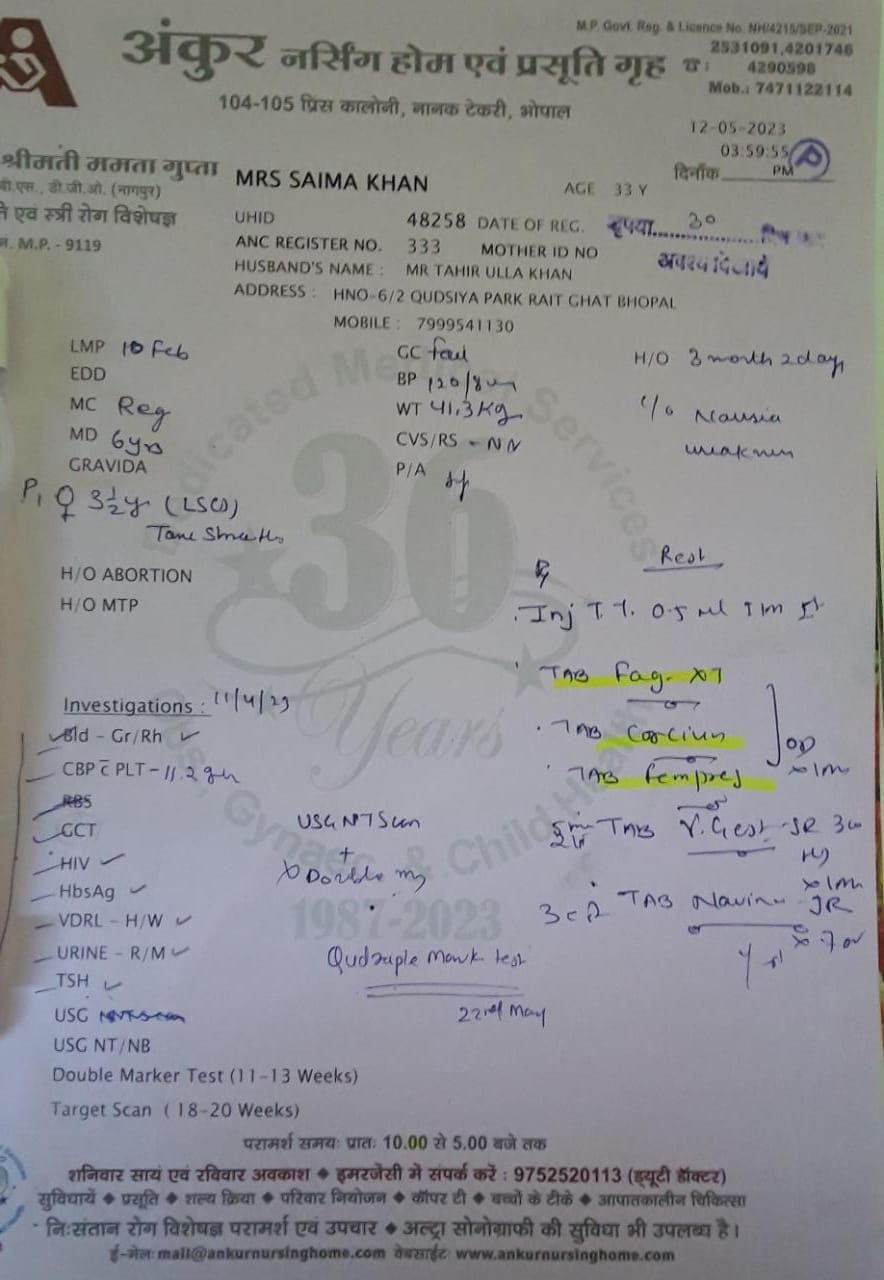 M.P. Govt. Reg. & Licence No. NH/4215/SEP-2021
अंकुर नर्सिंग होम एवं प्रसूति गृह
2531091,4201746
4290598
Mob.: 7471122114
104-105 प्रिंस कालोनी, नानक टेकरी, भोपाल
12-05-2023
03:59:55 PM
दिनाँक
श्रीमती ममता गुप्ता
बी.एस., डी.जी.ओ. (नागपुर)
एवं स्त्री रोग विशेषज्ञ
M.P. - 9119
MRS SAIMA KHAN
AGE 33 Y
UHID 48258 DATE OF REG.
रूपया 30
ANC REGISTER NO. 333 MOTHER ID NO
HUSBAND'S NAME : MR TAHIR ULLA KHAN
ADDRESS : HNO-6/2 QUDSIYA PARK RAIT GHAT BHOPAL
MOBILE : 7999541130
LMP 10 Feb
GC fair
H/O 3 month 2 days
EDD
BP 120/80
MC Reg
WT 41.3 Kg
C/o Nausia
MD 6 yrs
CVS/RS - NN
weakness
GRAVIDA
P/A
P1 ♀ 3½ y (LSCS)
H/O ABORTION
Rest
H/O MTP
Inj T.T. 0.5 ml IM
TAB Fag-XT
Investigations : 11/4/23
Bld - Gr/Rh
TAB
CBP c̄ PLT - 11.2 gm
TAB
RBS
USG NT Scan
GCT
+
TAB SR 300
HIV
Double
HbsAg
TAB
VDRL - H/W
URINE - R/M
Qudruple Mark test
TSH
22nd May
USG
USG NT/NB
Double Marker Test (11-13 Weeks)
Target Scan ( 18-20 Weeks)
परामर्श समयः प्रातः 10.00 से 5.00 बजे तक
शनिवार सायं एवं रविवार अवकाश ◆ इमरजेंसी में संपर्क करें : 9752520113 (ड्यूटी डॉक्टर)
सुविधायें ◆ प्रसूति ◆ शल्य क्रिया ◆ परिवार नियोजन ◆ कॉपर टी ◆ बच्चों के टीके ◆ आपातकालीन चिकित्सा
निःसंतान रोग विशेषज्ञ परामर्श एवं उपचार ◆ अल्ट्रा सोनोग्राफी की सुविधा भी उपलब्ध है।
ई-मेलः mail@ankurnursinghome.com वेबसाईटः www.ankurnursinghome.com
36
Years
Dedicated Medical Services
Gynaec & Child Health
1987-2023